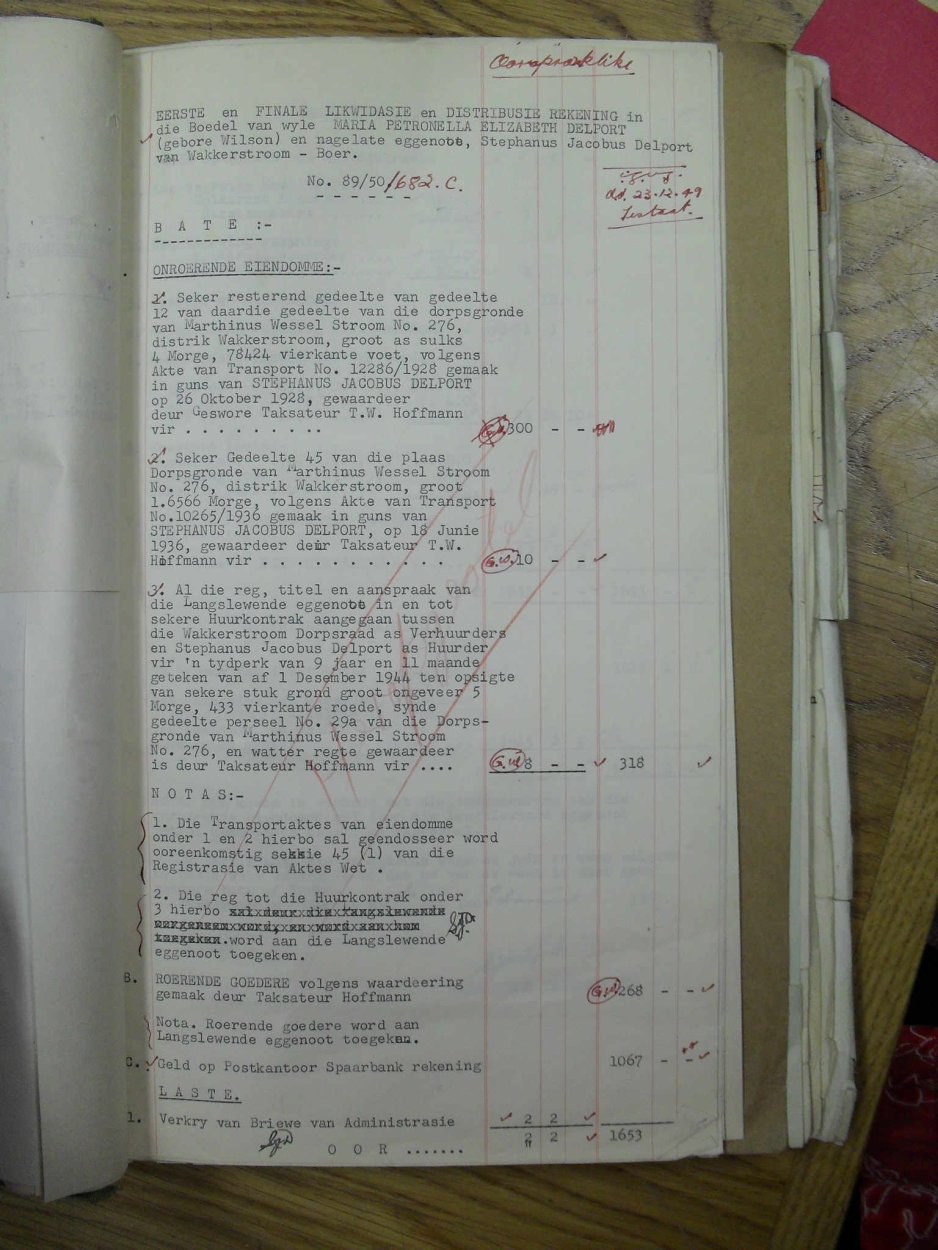 Oorspronklike
EERSTE en FINALE LIKWIDASIE en DISTRIBUSIE REKENING in
die Boedel van wyle MARIA PETRONELLA ELIZABETH DELPORT
(gebore Wilson) en nagelate eggenote, Stephanus Jacobus Delport
van Wakkerstroom - Boer.
No. 89/50/682. C.
dd. 23.12.49
Testaat.
B A T E :-
ONROERENDE EIENDOMME:-
1. Seker resterend gedeelte van gedeelte
12 van daardie gedeelte van die dorpsgronde
van Marthinus Wessel Stroom No. 276,
distrik Wakkerstroom, groot as sulks
4 Morge, 78424 vierkante voet, volgens
Akte van Transport No. 12286/1928 gemaak
in guns van STEPHANUS JACOBUS DELPORT
op 26 Oktober 1928, gewaardeer
deur Geswore Taksateur T.W. Hoffmann
vir . . . . . . . . . G.W. 300 - -
2. Seker Gedeelte 45 van die plaas
Dorpsgronde van Marthinus Wessel Stroom
No. 276, distrik Wakkerstroom, groot
1.6566 Morge, volgens Akte van Transport
No.10265/1936 gemaak in guns van
STEPHANUS JACOBUS DELPORT, op 18 Junie
1936, gewaardeer deur Taksateur T.W.
Hoffmann vir . . . . . . . . . . . G.W. 10 - -
3. Al die reg, titel en aanspraak van
die Langslewende eggenote in en tot
sekere Huurkontrak aangegaan tussen
die Wakkerstroom Dorpsraad as Verhuurders
en Stephanus Jacobus Delport as Huurder
vir 'n tydperk van 9 jaar en 11 maande
geteken van af 1 Desember 1944 ten opsigte
van sekere stuk grond groot ongeveer 5
Morge, 433 vierkante roede, synde
gedeelte perseel No. 29a van die Dorps-
gronde van Marthinus Wessel Stroom
No. 276, en watter regte gewaardeer
is deur Taksateur Hoffmann vir .... G.W. 8 - - 318
N O T A S:-
1. Die Transportaktes van eiendomme
onder 1 en 2 hierbo sal geendosseer word
ooreenkomstig seksie 45 (1) van die
Registrasie van Aktes Wet .
2. Die reg tot die Huurkontrak onder
3 hierbo
word aan die Langslewende
eggenoot toegeken.
B. ROERENDE GOEDERE volgens waardeering
gemaak deur Taksateur Hoffmann G.W. 268 - -
Nota. Roerende goedere word aan
Langslewende eggenoot toegeken.
C. Geld op Postkantoor Spaarbank rekening 1067 - -
L A S T E.
1. Verkry van Briewe van Administrasie 2 2
2 2 1653
O O R .......